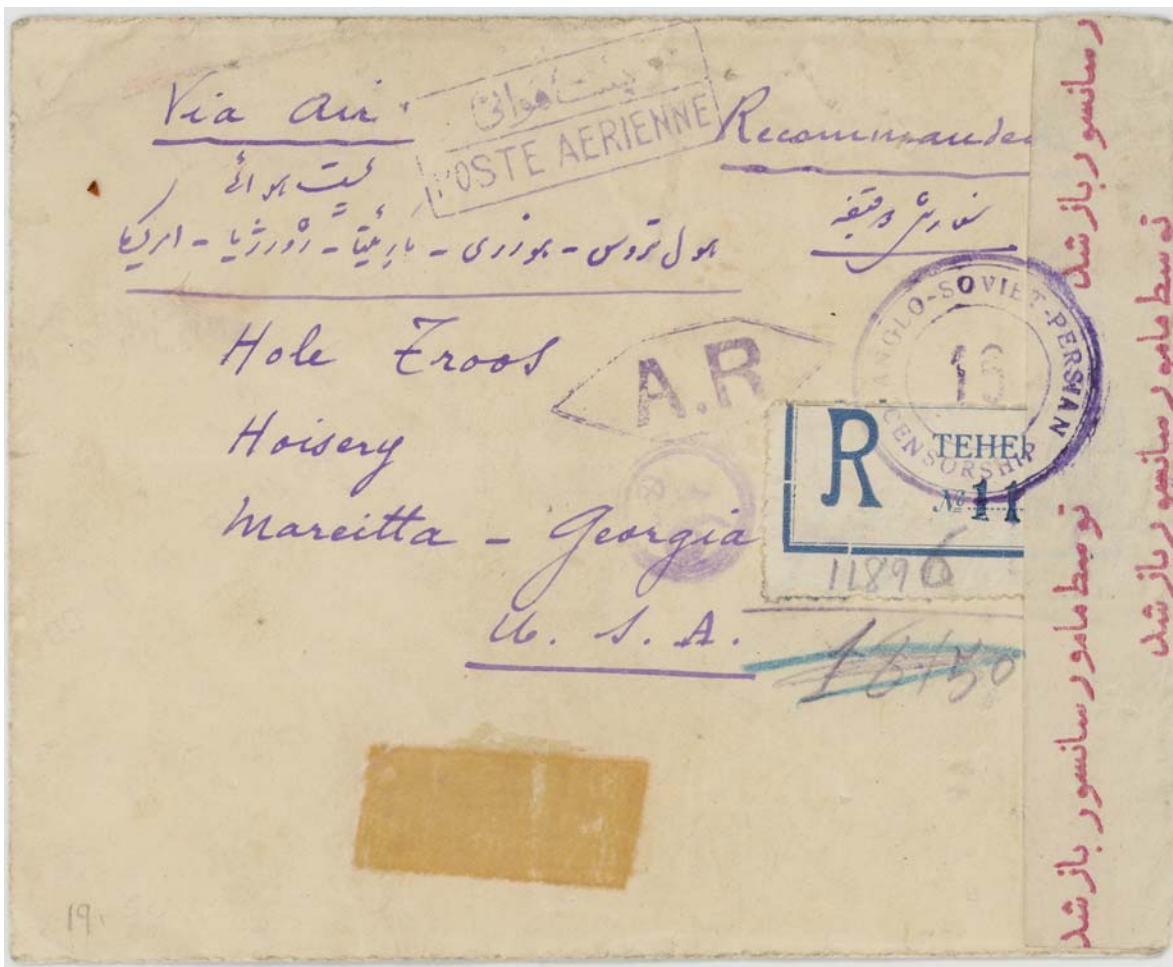 Via Air
پست هوائی
POSTE AERIENNE
Recommandee
پست هوائی
سفارشی دو قبضه
هول پروس - هوزری - ماریتا - ژورژیا - امریکا
Hole Eroos
Hoisery
Mareitta - Georgia
U. S. A.
A.R
ANGLO-SOVIET-PERSIAN
CENSORSHIP
13
R TEHE
№ 11
11896
16/50
19
توسط مامور سانسور باز شد
توسط مامور سانسور باز شد
ر سانسور باز شد